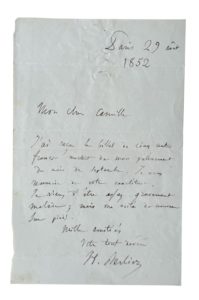 Paris 29 août
1852
Mon cher Camille
J'ai reçu le billet de cinq cents
francs montant de mon paiement
du mois de Septembre. Je vous
remercie de votre exactitude.
Je viens d'être assez gravement
malade; mais me voilà de nouveau
sur pied.
Mille amitiés
votre tout dévoué
H. Berlioz